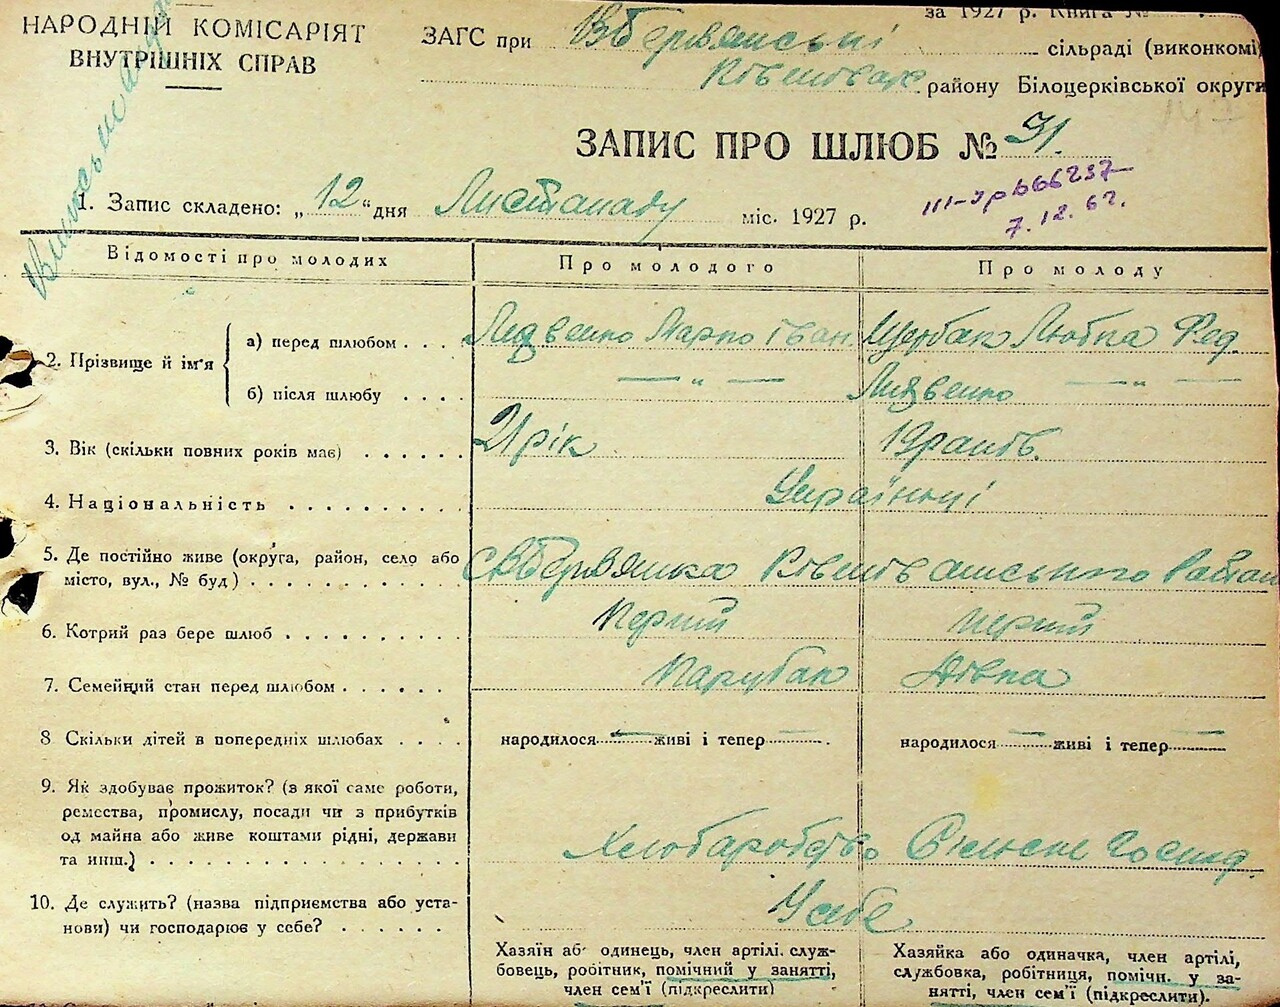 за 1927 р. Книга №
НАРОДНІЙ КОМІСАРІЯТ
ВНУТРІШНІХ СПРАВ
ЗАГС при
сільраді (виконкомі)
району Білоцерківської округи
147
ЗАПИС ПРО ШЛЮБ № 31.
1. Запис складено: „12“ дня Листападу міс. 1927 р.
III-УР 666237
7.12.62.
Відомості про молодих
Про молодого
Про молоду
2. Прізвище й ім'я
а) перед шлюбом . . .
Марко Іван
Щербак Любка Фед.
б) після шлюбу . . . .
— „ —
— „ —
3. Вік (скільки повних років має) . . . . . .
21 рік
19 раків.
4. Національність . . . . . . . . . .
Українці
5. Де постійно живе (округа, район, село або
місто, вул., № буд) . . . . . . . . . . . .
6. Котрий раз бере шлюб . . . . . . . . . .
Перший
перший
7. Семейний стан перед шлюбом . . . . . .
Парубак
Дівка
8 Скільки дітей в попередніх шлюбах . . . .
народилося — живі і тепер — .
народилося — живі і тепер —
9. Як здобуває прожиток? (з якої саме роботи,
ремества, промислу, посади чи з прибутків
од майна або живе коштами рідні, держави
та инш.) . . . . . . . . . . . . . . . . . .
Хліобаробство Сільске Госпд.
10. Де служить? (назва підприємства або уста-
нови) чи господарює у себе? . . . . . .
Усебе
Хазяїн або одинець, член артілі. служ-
бовець, робітник, помічний у занятті,
член сем'ї (підкреслити)
Хазяйка або одиначка, член артілі,
службовка, робітниця, помічн. у за-
нятті, член сем'ї (підкреслити).